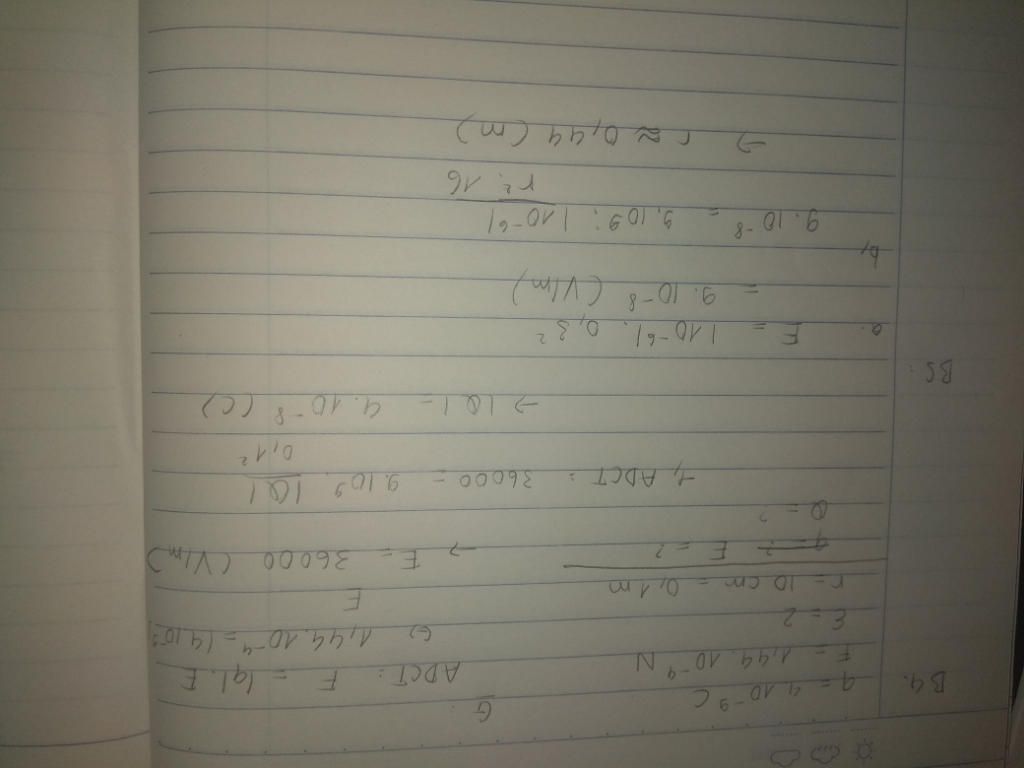 B4.
q = 4.10⁻⁹ C
F = 1,44.10⁻⁴ N
ε = 2
r = 10 cm = 0,1m
E = ?
Q = ?
G
ADCT: F = |q|.E
(=) 1,44.10⁻⁴ = |4.10⁻⁹|
E
→ E = 36000 (V/m)
+, ADCT: 36000 = 9.10⁹. |Q| / 0,1²
→ |Q| = 4.10⁻⁸ (C)
B5:
a. E = |10⁻⁶|. 0,3²
= 9.10⁻⁸ (V/m)
b,
9.10⁻⁸ = 9.10⁹. |10⁻⁶| / r². 16
→ r ≈ 0,44 (m)